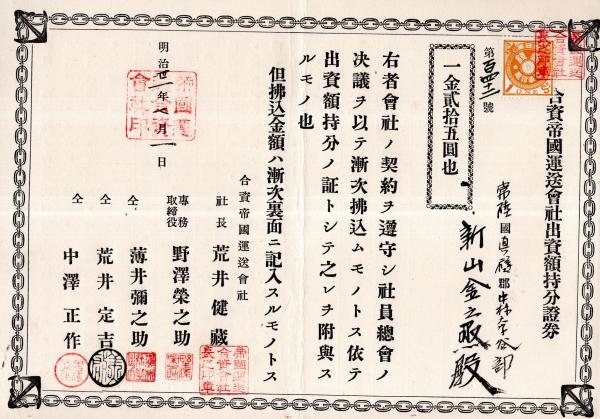 合資帝國運送會社出資額持分證券
第百四十二號
一金貳拾五圓也
常陸國真壁郡中村
新山金之助殿
右者會社ノ契約ヲ遵守シ社員總會ノ
決議ヲ以テ漸次拂込ムモノトス依テ
出資額持分ノ証トシテ之レヲ附與ス
ルモノ也
但拂込金額ハ漸次裏面ニ記入スルモノトス
明治 年 月一日
帝國運
會社印
合資帝國運送會社
社長 荒井健藏
專務取締役 野澤榮之助
仝 薄井彌之助
仝 荒井定吉
仝 中澤正作